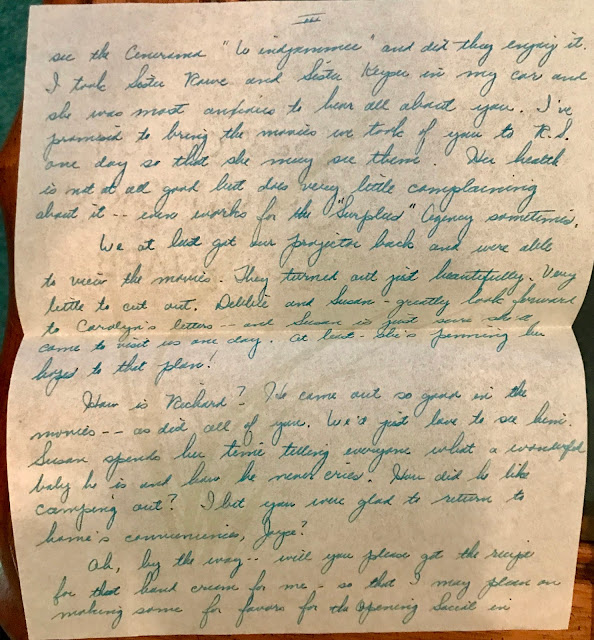 III
see the Cenerama "Windjammer" and did they enjoy it.
I took Sister Rowe and Sister Keyser in my car and
she was most anxious to hear all about you. I've
promised to bring the movies we took of you to R.S.
one day so that she may see them. Her health
is not at all good but does very little complaining
about it -- even works for the "Surplus" Agency sometimes.
We at last got our projector back and were able
to view the movies. They turned out just beautifully. Very
little to cut out. Debbie and Susan - greatly look forward
to Carolyn's letters -- and Susan is just sure she'll
come to visit us one day. At least - she's pinning her
hopes to that plan!
How is Richard? He came out so good in the
movies -- as did all of you. We'd just love to see him.
Susan spends her time telling everyone what a wonderful
baby he is and how he never cries. How did he like
camping out? I bet you were glad to return to
home's conveniences, Joyce?
Oh, by the way -- will you please get the recipe
for that hand cream for me - so that I may plan on
making some for favors for the Opening Social in